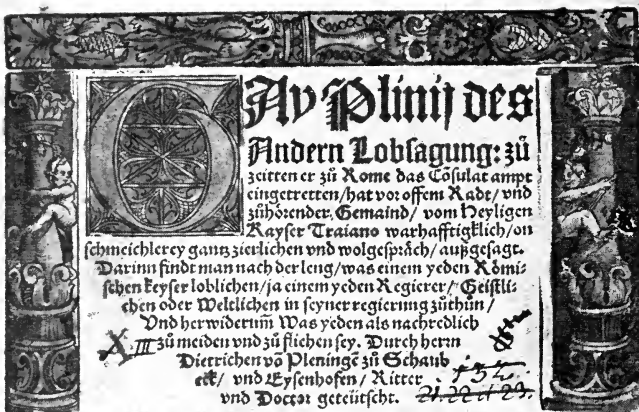 GAy Plinij des
Andern Lobsagung: zů
zeitten er zů Rome das Cõsulat ampt
eingetretten/hat vor offem Radt/ vnd
zůhörender. Gemaind/ vom Heyligen
Kayser Traiano warhafftigklich/on
schmeichlerey gantz zierlichen vnd wolgespräch/ außgesagt.
Darinn findt man nach der leng/was einem yeden Römi-
schen keyser loblichen/ja einem yeden Regierer/ Geistli-
chen oder Weltlichen in seyner regierung zůthůn/
Vnd herwiderum̃ Was yeden als nachredlich
XIII zů meiden vnd zů fliehen sey. Durch herrn
Dietrichen võ Pleningẽ zů Schaub
eck/ vnd Eysenhofen/ Ritter
vnd Doctor geteütscht.